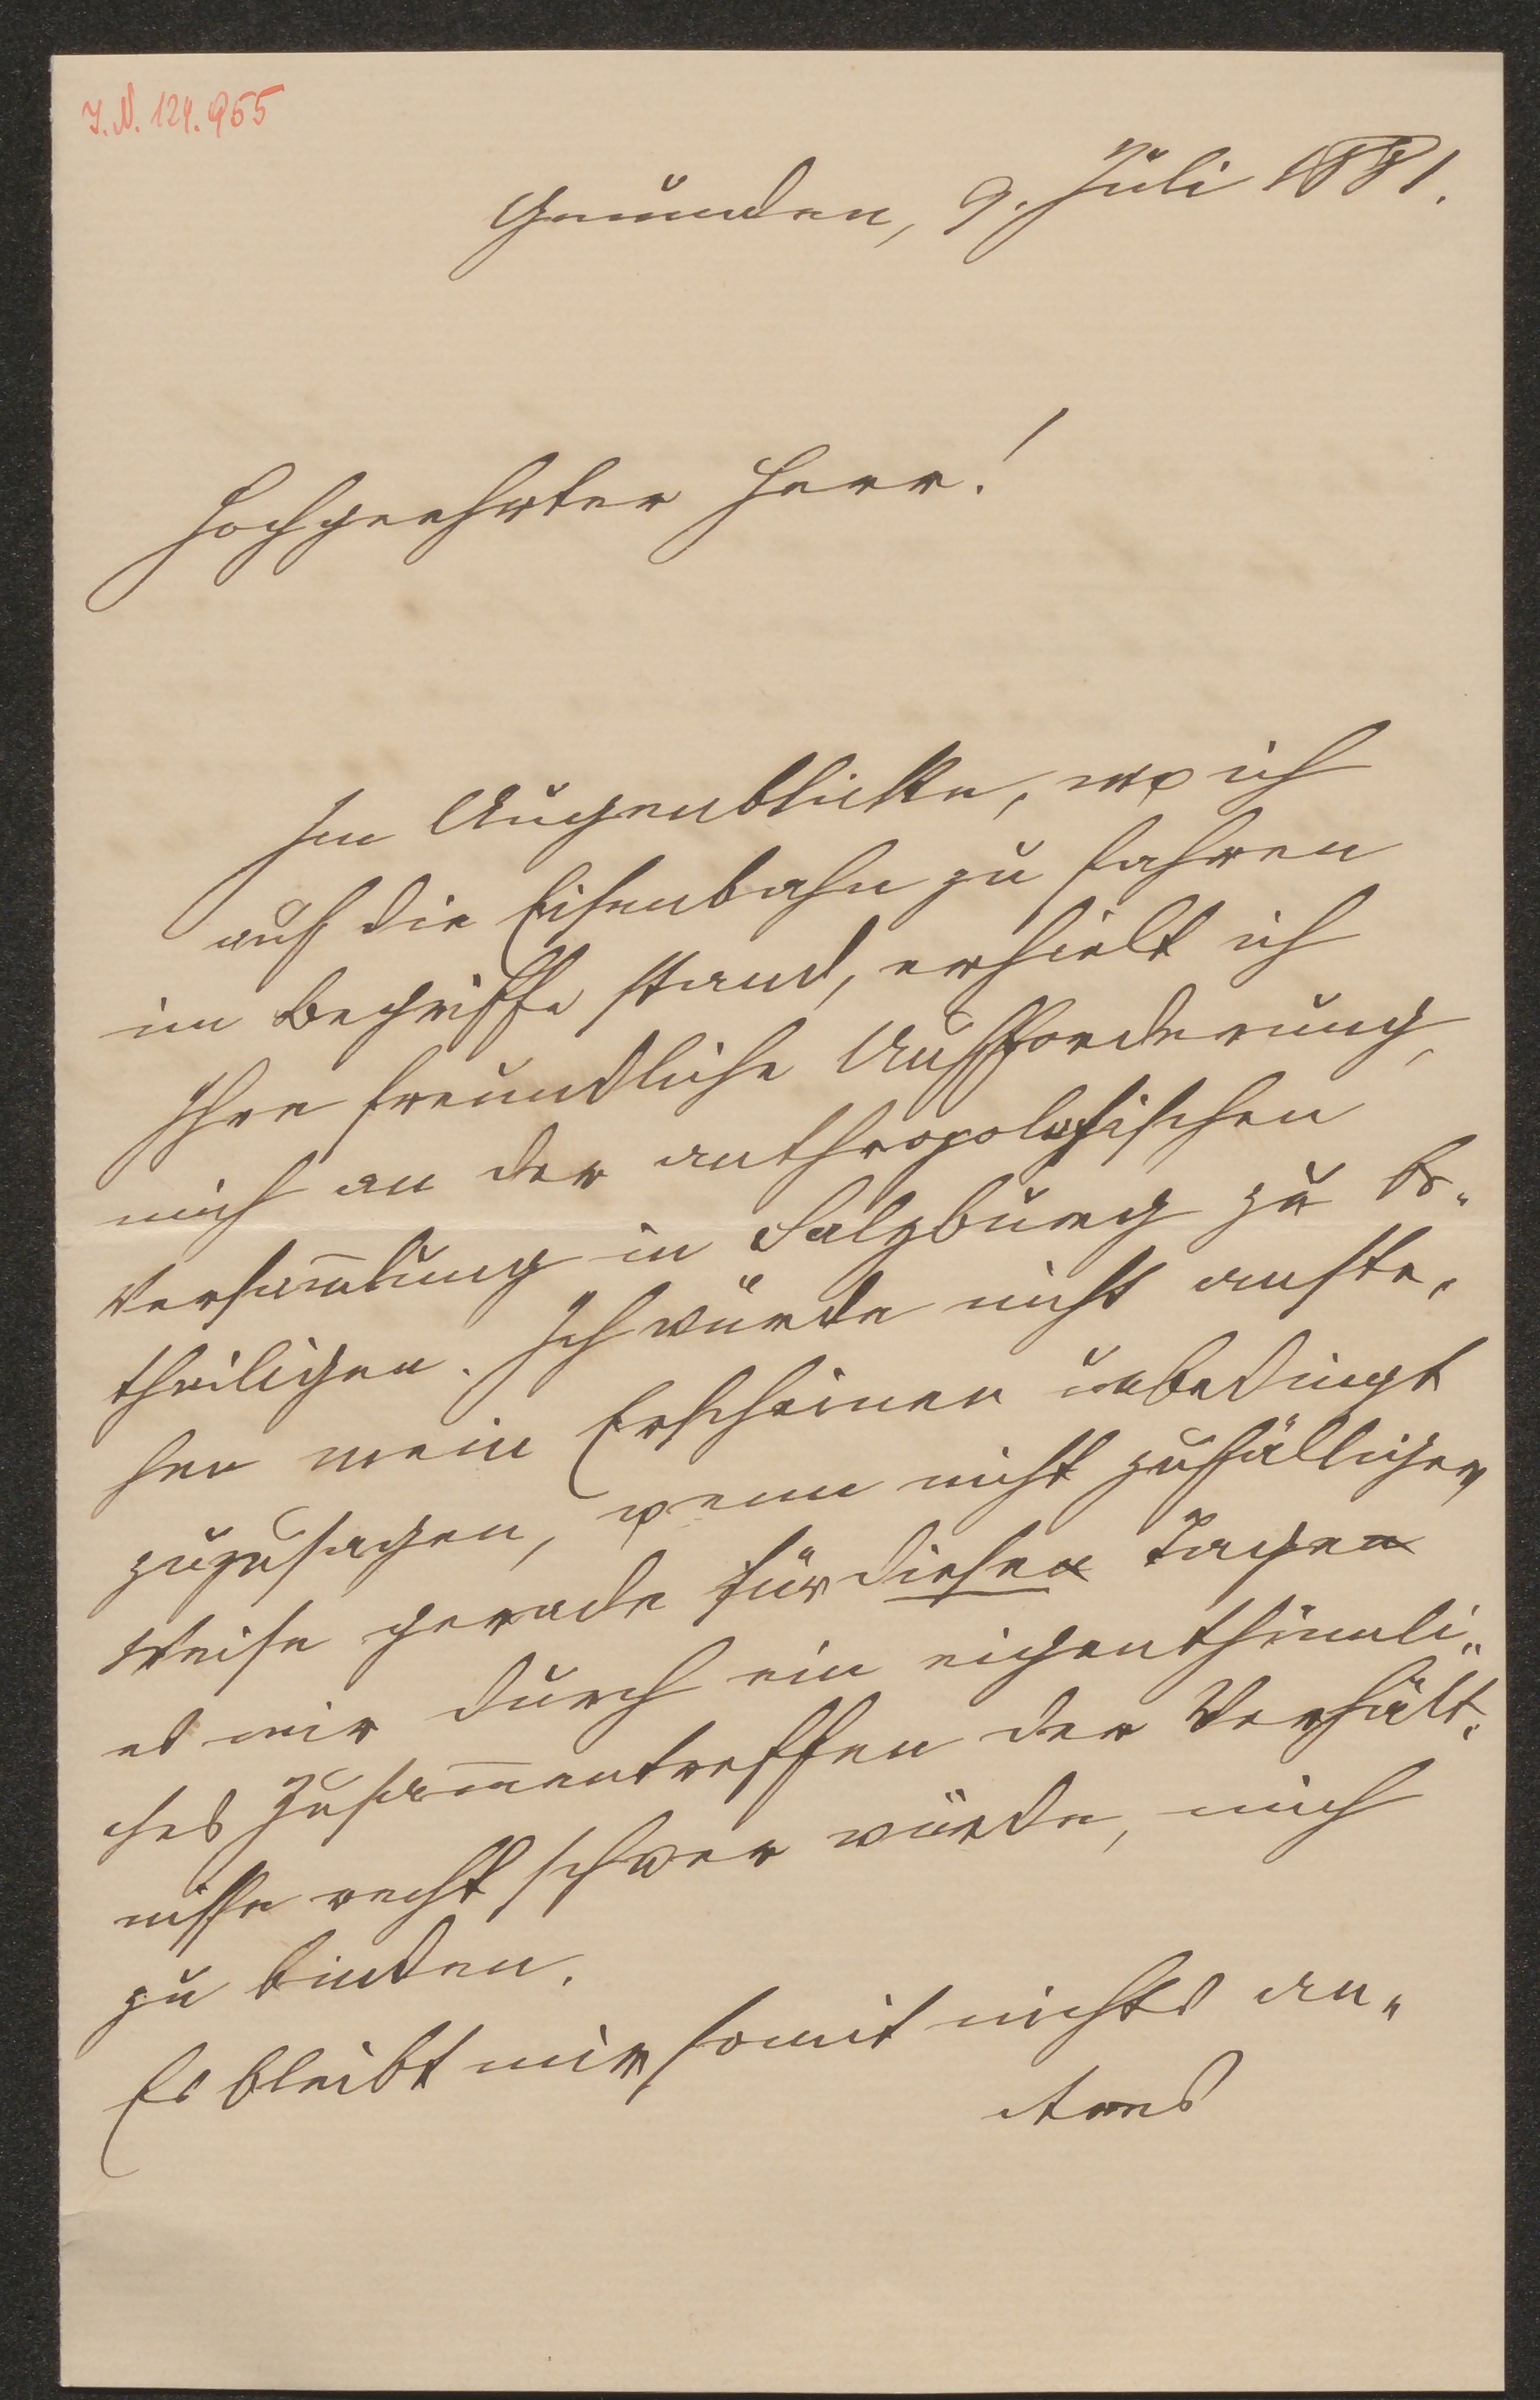 I. N. 124.955
Gmunden, 9. Juli 1881.
Hochgeehrter Herr!
Im Augenblicke, wo ich
auf die Eisenbahn zu fahren
im Begriffe stand, erhielt ich
Ihre freundliche Aufforderung,
mich an der anthropologischen
Versam̅lung in Salzburg zu be-
theiligen. Ich würde nicht anste-
hen mein Erscheinen unbedingt
zuzusagen, wenn nicht zufälliger
Weise gerade für diese Tage
es mir durch ein eigenthümli-
ches Zusam̅entreffen der Verhält-
nisse recht schwer würde, mich
zu binden.
Es bleibt mir somit nichts an-
deres